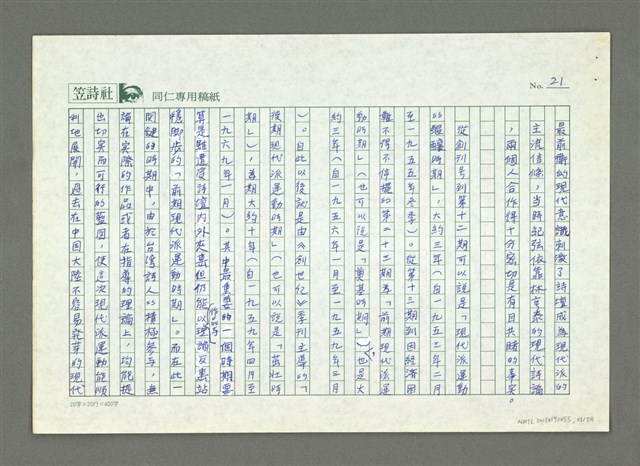 笠詩社 同仁專用稿紙
No. 21
最前衛的現代意識刺激了詩壇成為現代派的
主流信條,當時紀弦依靠林亨泰的現代詩論
,兩個人合作得十分密切是有目共睹的事實。
從創刊号到第十二期可以說是「現代派運動
的醞釀時期」,大約三年(自一九五三年二月
至一九五五年冬季)。從第十三期到因經濟困
難不得不停擺的第二十三期為「前期現代派運
動時期」(也可以說是「奠基時期」),也是大
約三年(自一九五六年一月至一九五九年三月
)。自此以後就是由《創世紀》季刊主導的「
後期現代派運動時期」(也可以說是「茁壯時
期」),為期大約十年(自一九五九年四月至
一九六九年一月)。其中最重要的一個時期要
算是雖遭度詩壇內外夾襲但仍能以理論反擊站
作品與
穩脚步的「前期現代派運動時期」。而在此一
関鍵的時期中,由於台灣詩人的積極参与,無
論在實際的作品或者在指導的理論上,均能提
出切實而可行的藍図,使這次現代派運動能順
利地展開,過去在中国大陸不容易発芽的現代
20字×20行=400字